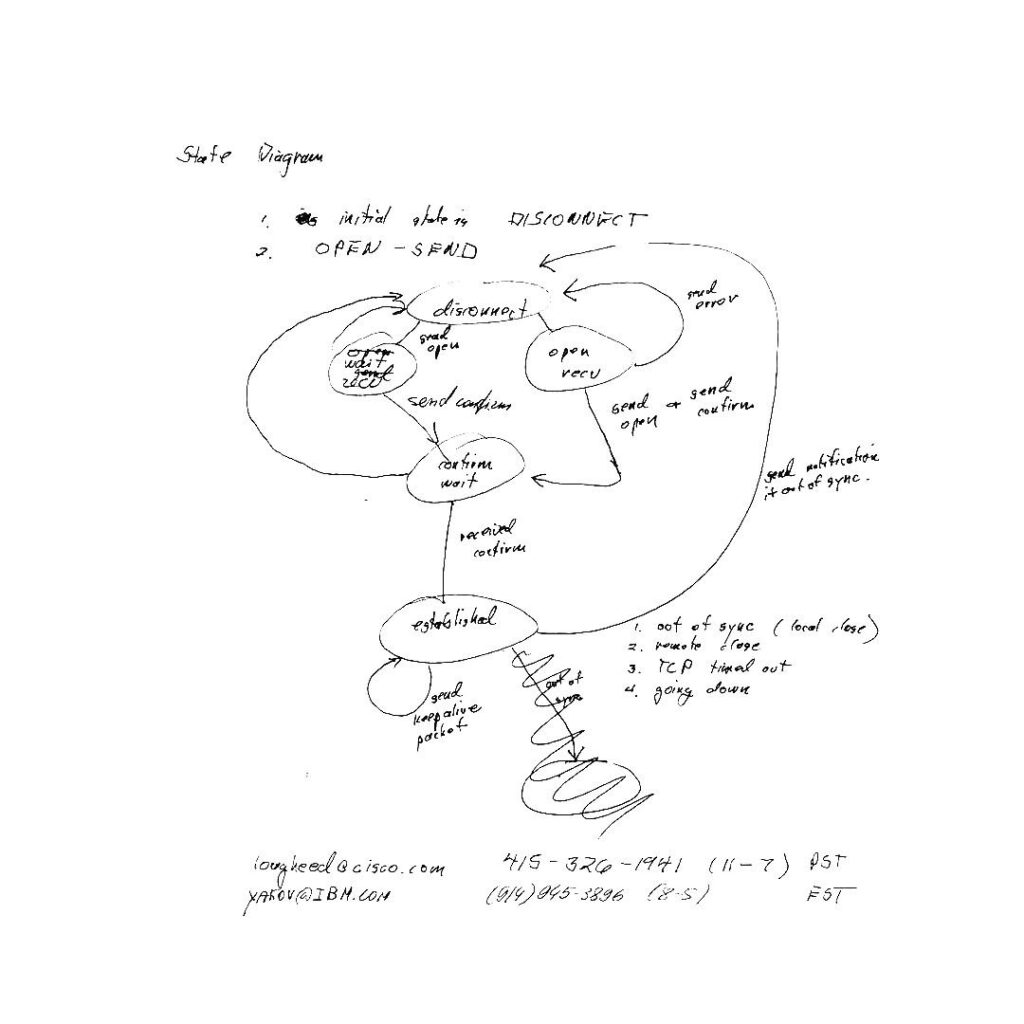 State Diagram
1. initial state is DISCONNECT
2. OPEN - SEND
disconnect
send
error
send
open
open
wait
send
recv
open
recv
send confirm
send
open + send
confirm
confirm
wait
send notification
if out of sync.
received
confirm
established
1. out of sync (local close)
2. remote close
3. TCP timed out
4. going down
out of
sync
send
keepalive
packet
lougheed@cisco.com 415-326-1941 (11-7) PST
YAKOV@IBM.COM (914)945-3896 (8-5) EST